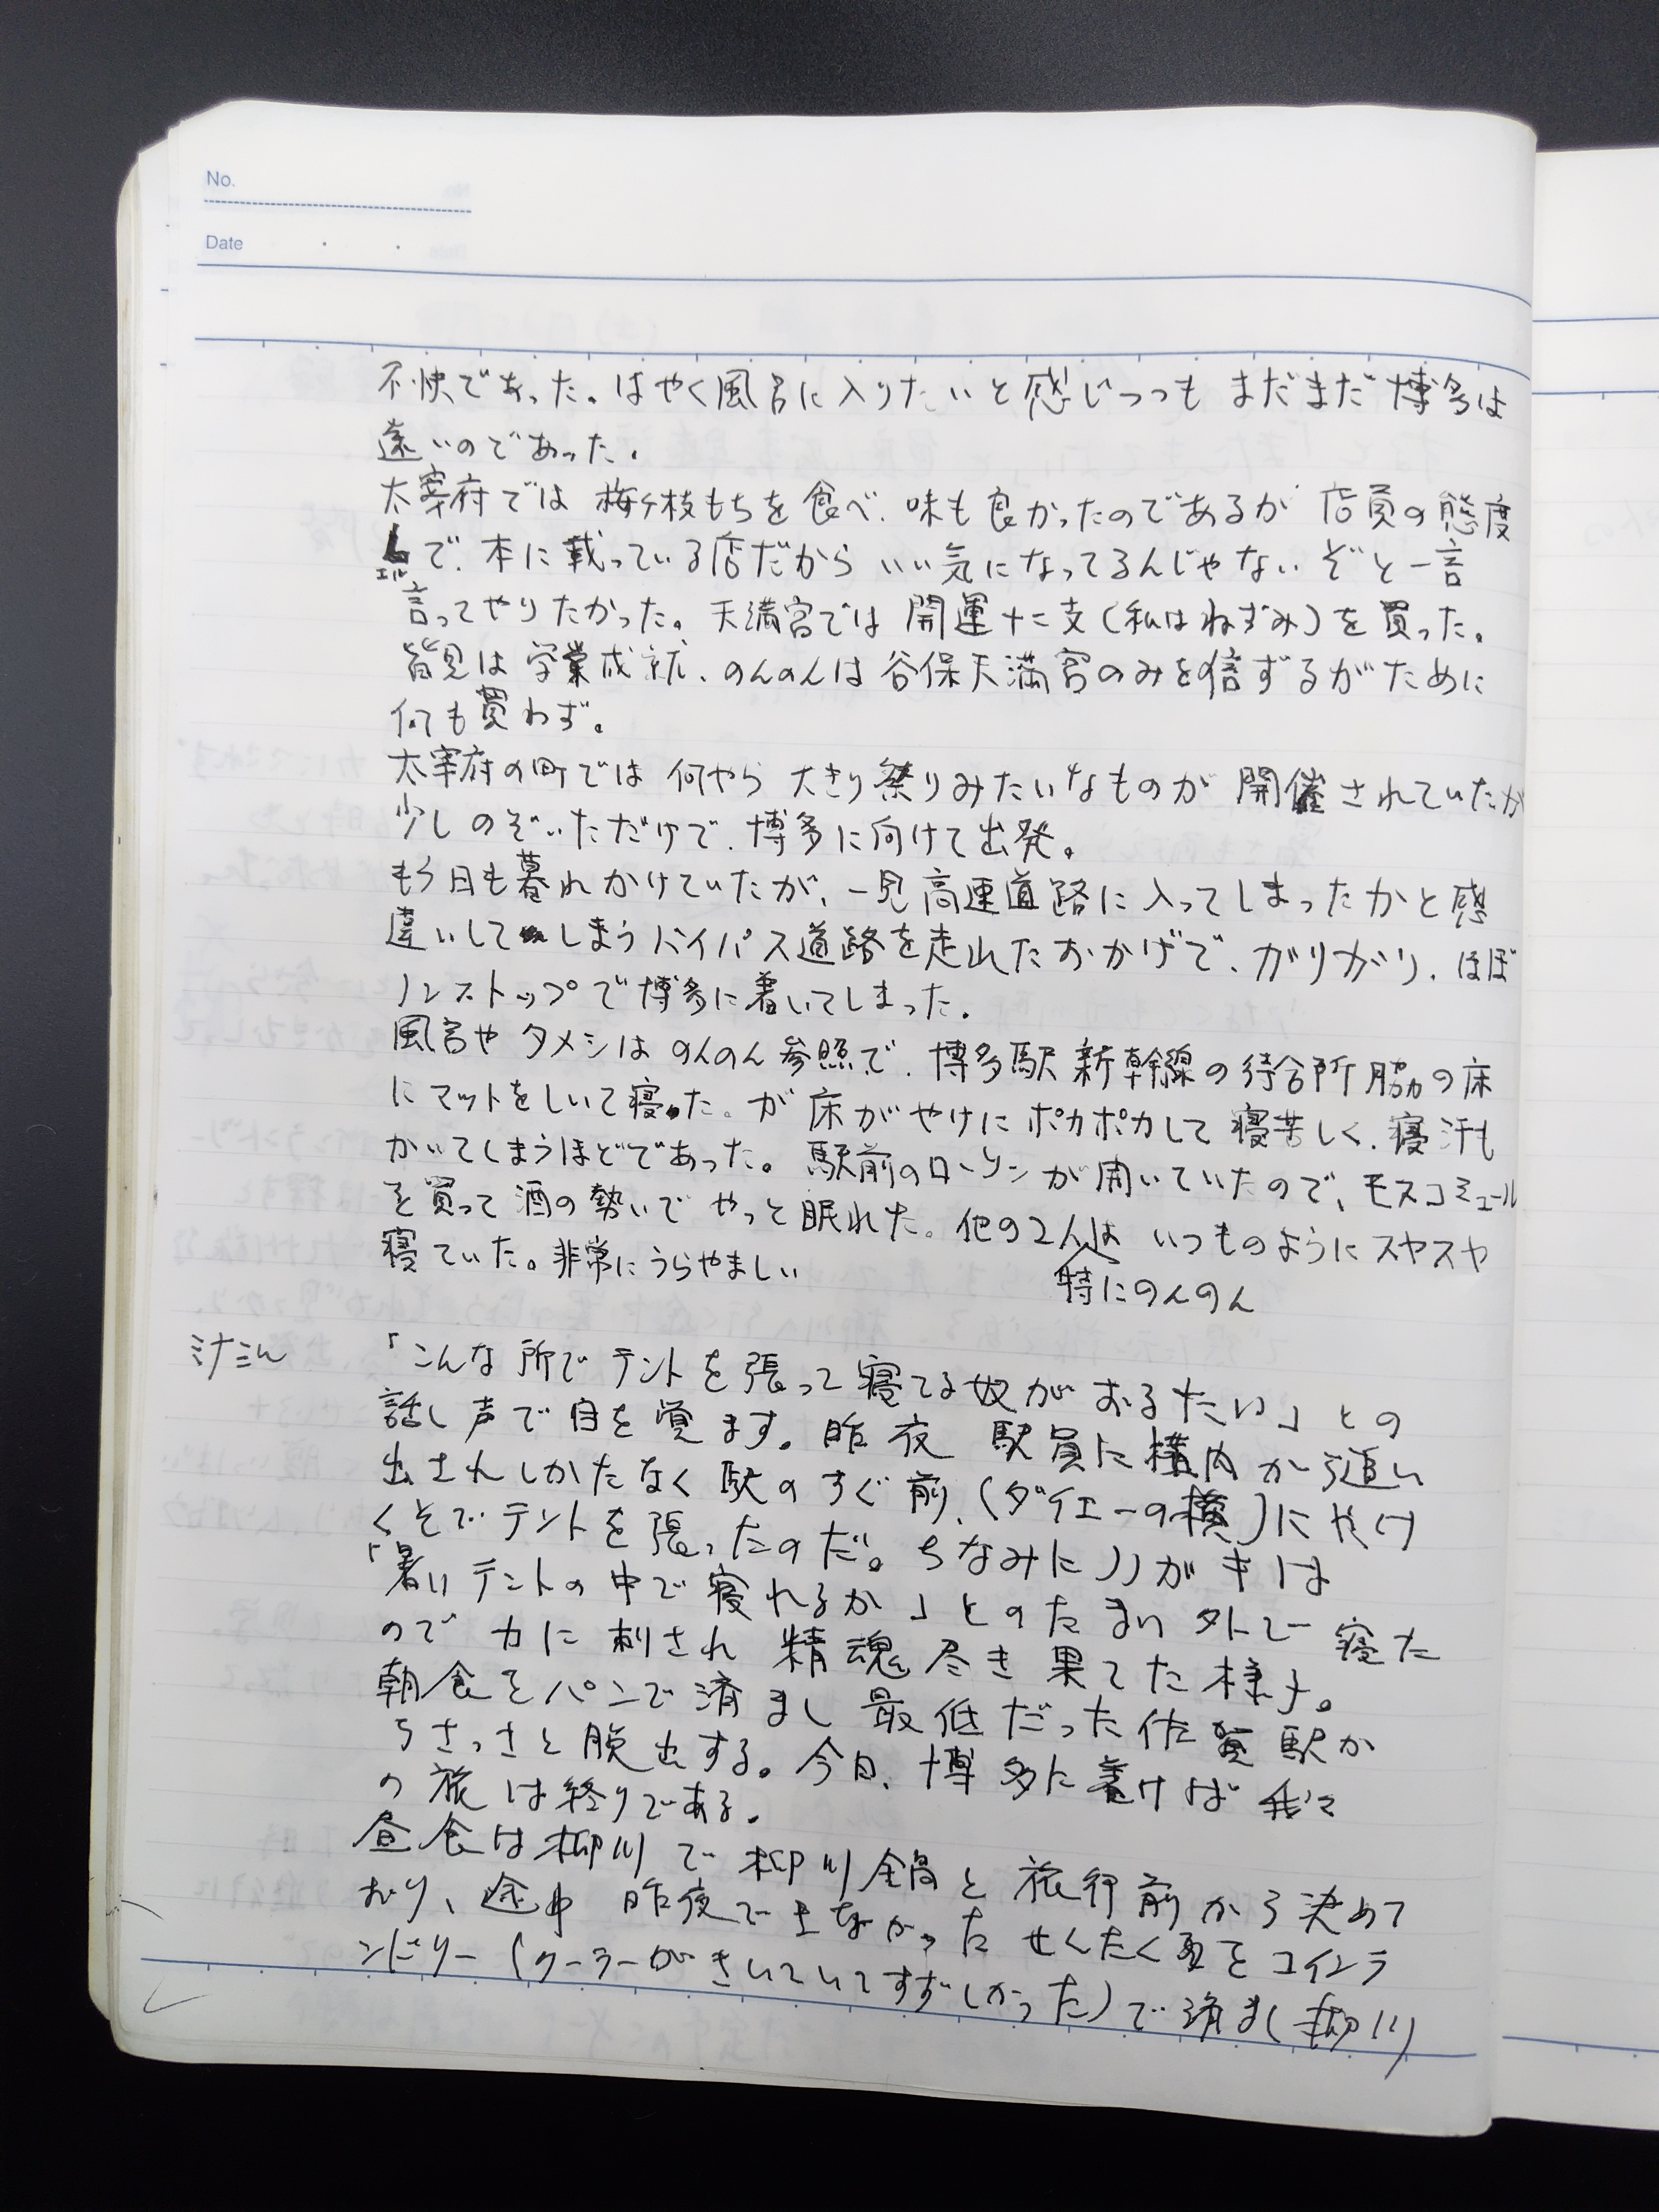 No.
Date
不快であった。はやく風呂に入りたいと感じつつも まだまだ博多は
遠いのであった。
太宰府では 梅ヶ枝もちを食べ、味も良かったのであるが 店員の態度
Lで、本に載っている店だから いい気になってるんじゃないぞと一言
エル
言ってやりたかった。天満宮では 開運十二支(私はねずみ)を買った。
皆見は学業成就、のんのんは谷保天満宮のみを信ずるがために
何も買わず。
太宰府の町では 何やら 大きり祭りみたいなものが 開催されていたが
少しのぞいただけで、博多に向けて出発。
もう日も暮れかけていたが、一見高速道路に入ってしまったかと感
違いしてしまうバイパス道路を走れたおかげで、がりがり、ほぼ
ノンストップで博多に着いてしまった。
風呂や夕メシは のんのん参照で、博多駅新幹線の待合所脇の床
にマットをしいて寝た。が床がやけにポカポカして寝苦しく、寝汗も
かいてしまうほどであった。駅前のローソンが開いていたので、モスコミュール
を買って 酒の勢いで やっと眠れた。他の2人は いつものようにスヤスヤ
寝ていた。非常にうらやましい
特にのんのん
ミナミん
「こんな所でテントを張って寝てる奴がおるたい」との
話し声で目を覚ます。昨夜 駅員に構内から追い
出されしかたなく駅のすぐ前、(ダイエーの横)にやけ
くそでテントを張ったのだ。ちなみにノノガキは
「暑いテントの中で寝れるか」とのたまい 外で寝た
ので カに刺され 精魂尽き果てた様子。
朝食をパンで済まし 最低だった佐賀駅か
らさっさと脱出する。今日、博多に着けば 我々
の旅は終りである。
昼食は柳川で柳川鍋と旅行前から決めて
おり、途中 昨夜できなかったせんたく物をコインラ
ンドリー(クーラーがきいていてすずしかった)で済まし柳川